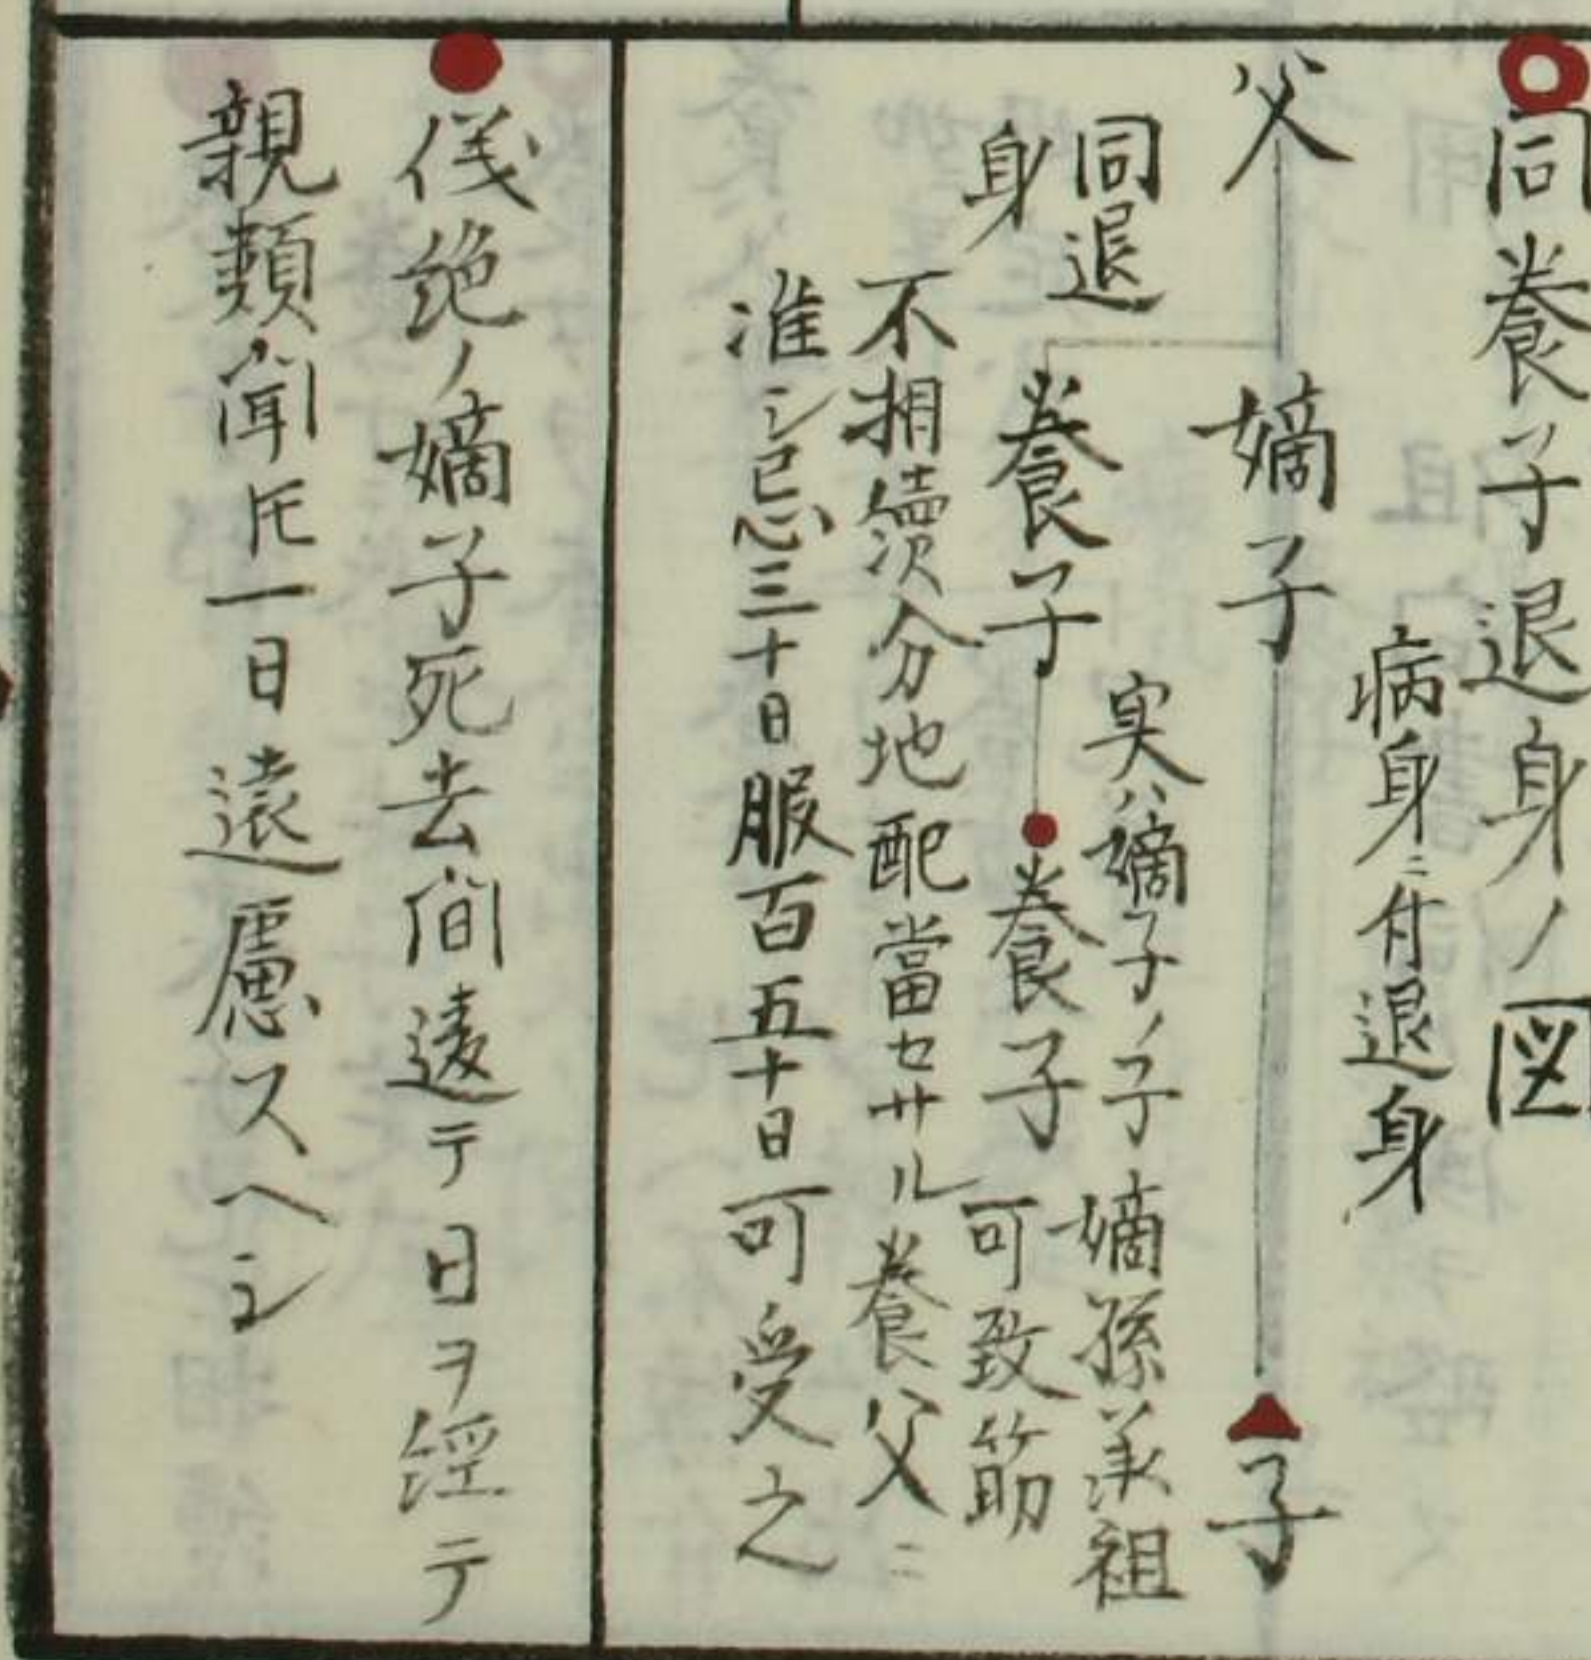 同養子退身ノ図
病身ニ付退身
父
嫡子
子
同退
身
養子
実ハ嫡子ノ子
養子
嫡孫承祖
可致筋
不相續分地配當セサル養父ニ
准シ忌三十日服百五十日可受之
儀絶ノ嫡子死去間遠テ日ヲ經テ
親類聞圧一日遠慮スヘシ